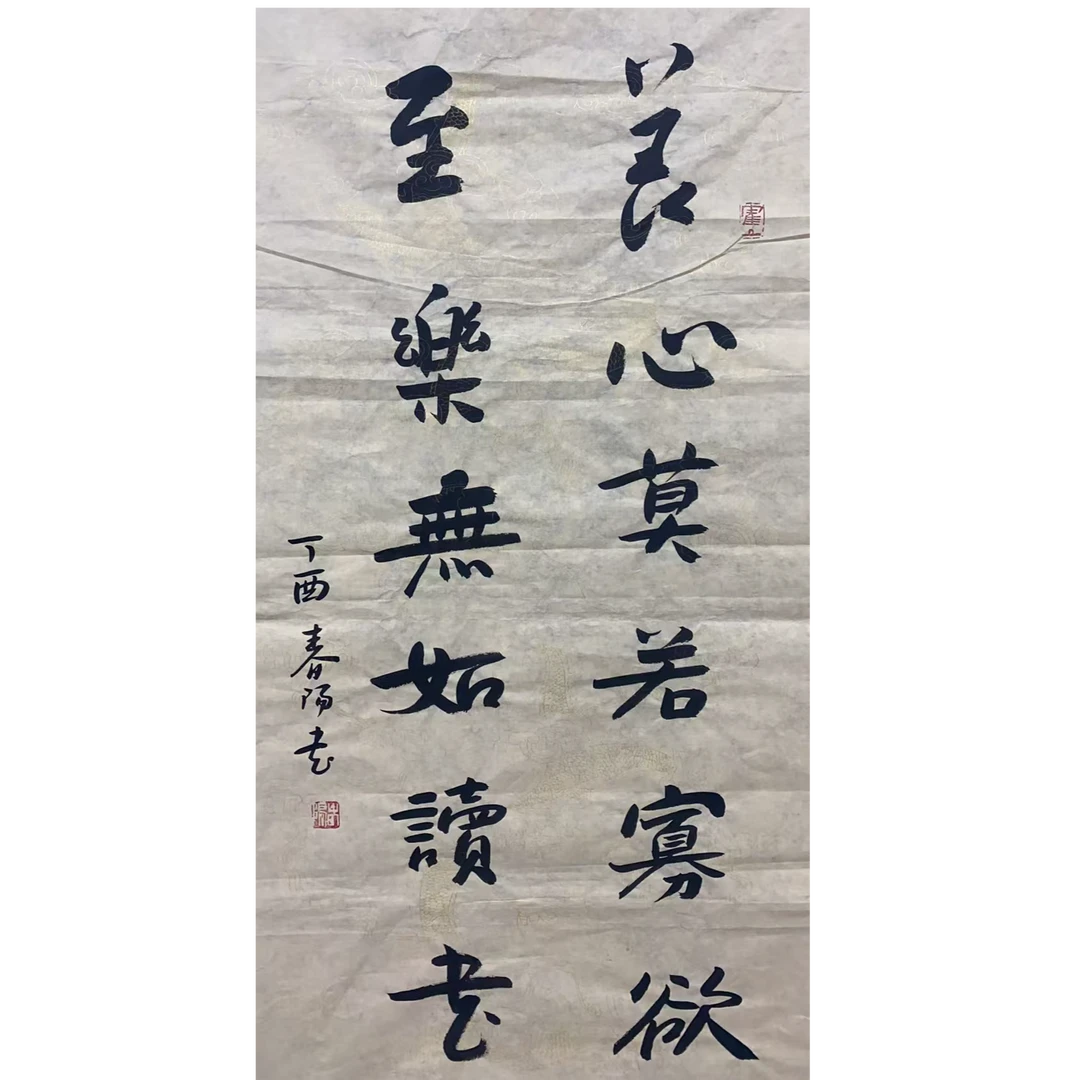 養心莫若寡欲
至樂無如讀书
丁酉春陽书